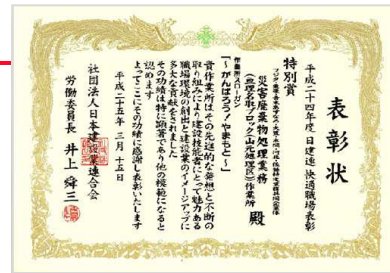 表彰状
平成二十四年度 日建連 快適職場表彰
特別賞
災害廃棄物処理業務
(亘理名取ブロック(山元処理区))作業所 殿
作業所スローガン
「～がんばろう！やまもと～」
貴作業所はその先進的な発想と不断の
取り組みにより建設技能者にとって魅力ある
職場環境の創出と建設業のイメージアップに
多大な貢献をされました
その功績は特に顕著であり他の模範になると
認めます
よってここにその功績に感謝し表彰いたします
平成二十五年 三月 十五日
社団法人日本建設業連合会
労働委員長 井上舜三